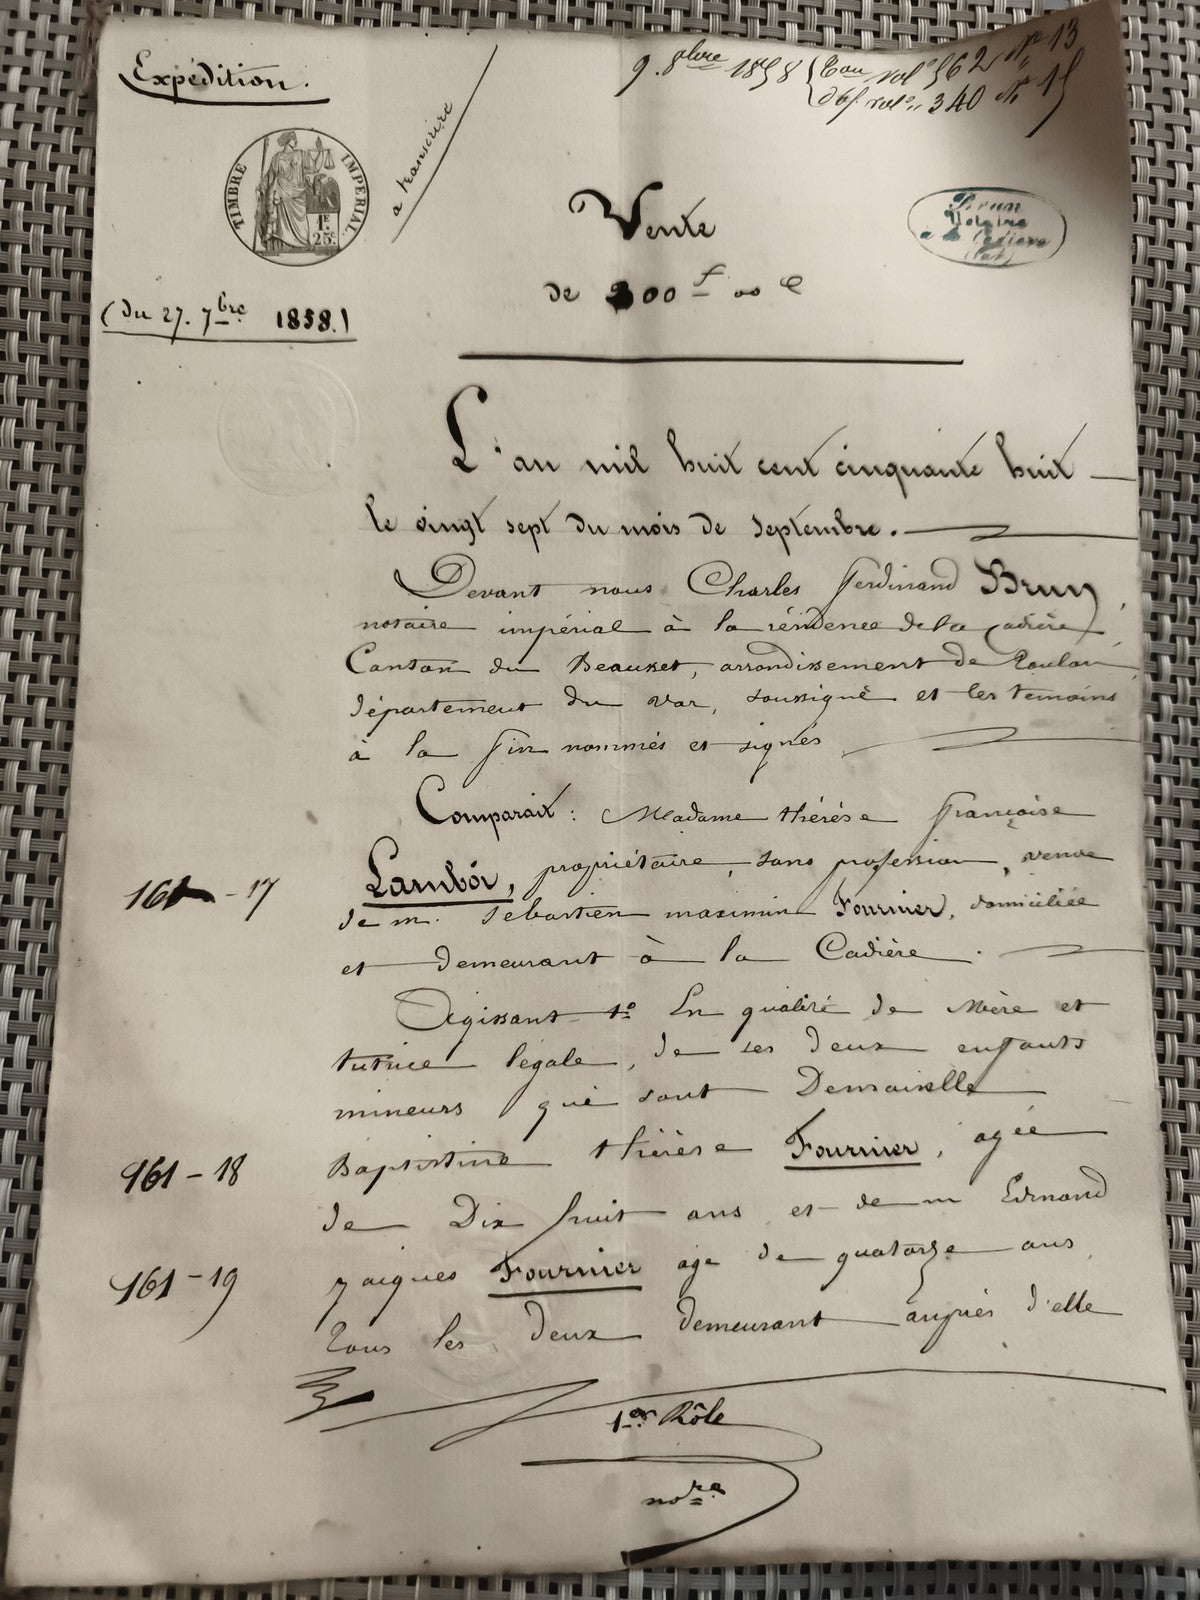 Expédition.
9. 8bre 1858 { Eau vol° 562 N° 13
def. vol°. 340 N° 15
a transcrire
TIMBRE IMPERIAL
1F.
25c
Vente
Brun
Notaire
à la Cadière
(Var)
de 300f 00 c
(du 27. 7bre 1858.)
L'an mil huit cent cinquante huit
le vingt sept du mois de septembre.
Devant nous Charles ferdinand Brun,
notaire impérial à la résidence de la Cadière,
Canton du Beausset, arrondissement de Toulon,
département du var, soussigné et les temoins
à la fin nommés et signés
Comparait : Madame thérèse françoise
Lambôr, propriétaire, sans profession, veuve
161 - 17
de m. Sébastien maximin Fournier, domiciliée
et demeurant à la Cadière.
Agissant 1° En qualité de Mère et
tutrice légale, de ses deux enfants
mineurs qui sont Demoiselle
Baptistine thérèse Fournier, agée
161 - 18
de Dix huit ans et de m Edmond
jaques Fournier age de quatorze ans,
161 - 19
tous les deux demeurant auprès d'elle
1er Rôle
nore